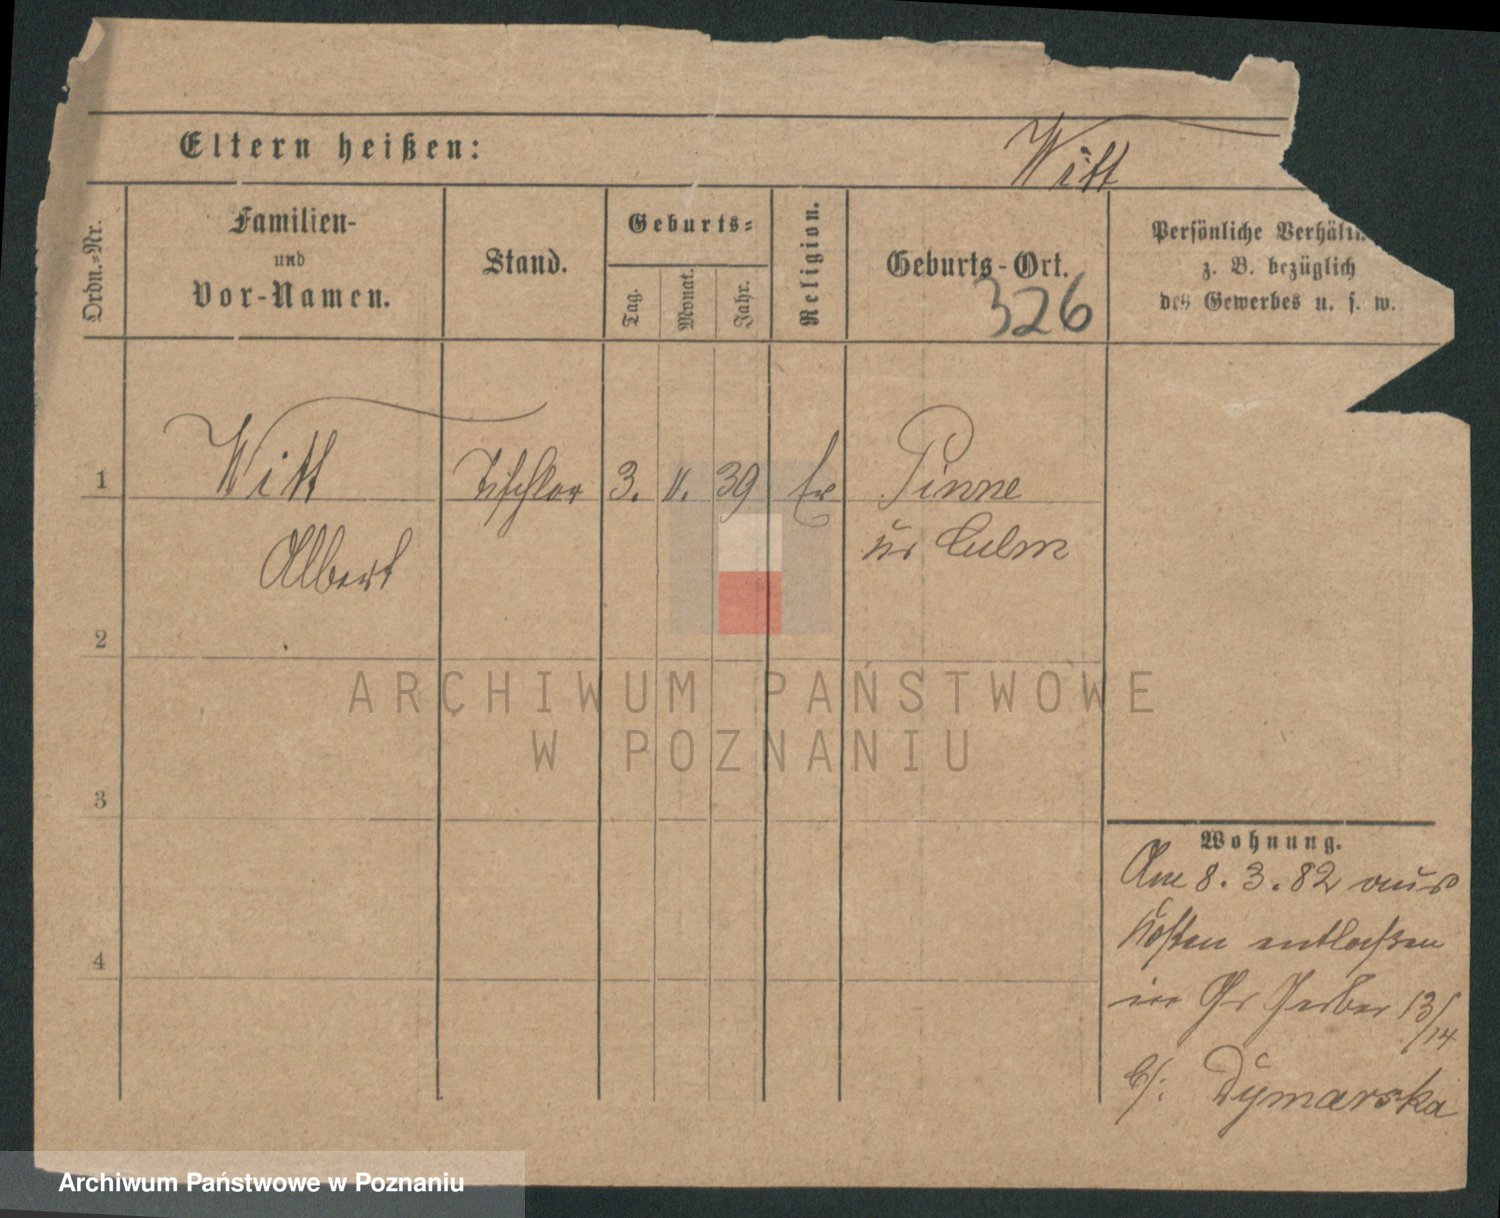 Eltern heißen: Witt
Ordn.-Nr.
Familien-
und
Vor-Namen.
Stand.
Geburts-
Tag.
Monat.
Jahr.
Religion.
Geburts-Ort.
326
Persönliche
z. B. bezüglich
des Gewerbes u. s. w.
1 Witt Tischler 3. 11. 39 Ev Pinne
Albert Culm
2
3
4
Wohnung.
Am 8. 3. 82 aus
Kosten entlaßen
in Gr Gerber 13/14
b/: Dymarska
ARCHIWUM PAŃSTWOWE
W POZNANIU
Archiwum Państwowe w Poznaniu